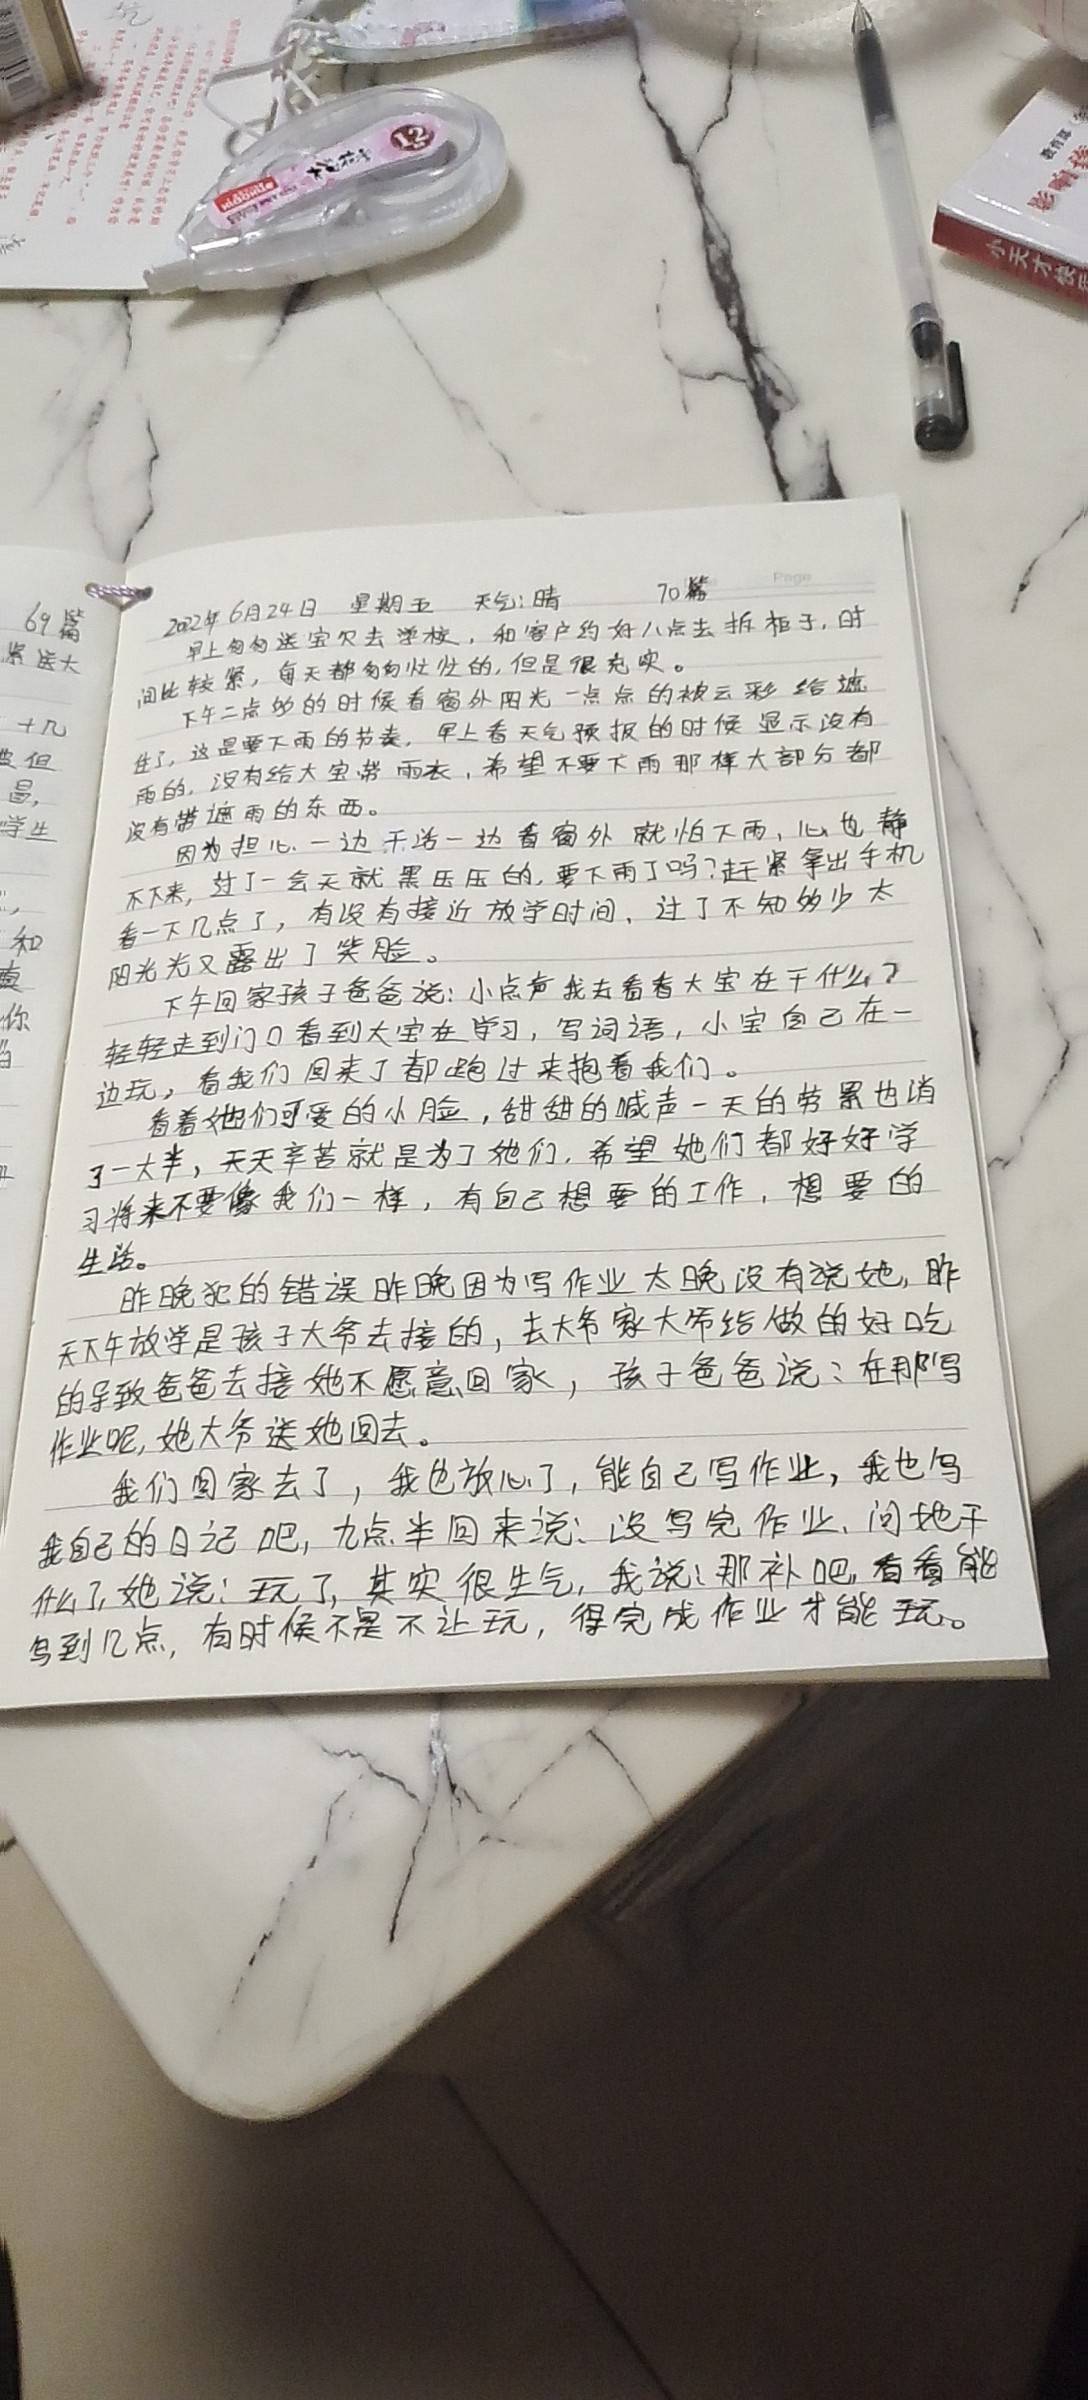 2022年6月24日 星期五 天气:晴 70篇
早上匆匆送宝贝去学校,和客户约好八点去拆柜子,时
间比较紧,每天都匆匆忙忙的,但是很充实。
下午二点多的时候看窗外阳光一点点的被云彩给遮
住了,这是要下雨的节奏,早上看天气预报的时候显示没有
雨的,没有给大宝带雨衣,希望不要下雨那样大部分都
没有带遮雨的东西。
因为担心一边干活一边看窗外就怕下雨,心也静
不下来,过了一会天就黑压压的,要下雨了吗?赶紧拿出手机
看一下几点了,有没有接近放学时间,过了不知多少太
阳光光又露出了笑脸。
下午回家孩子爸爸说:小点声我去看看大宝在干什么?
轻轻走到门口看到大宝在学习,写词语,小宝自己在一
边玩,看我们回来了都跑过来抱着我们。
看着她们可爱的小脸,甜甜的喊声一天的劳累也消
了一大半,天天辛苦就是为了她们,希望她们都好好学
习将来不要像我们一样,有自己想要的工作,想要的
生活。
昨晚犯的错误昨晚因为写作业太晚没有说她,昨
天下午放学是孩子大爷去接的,去大爷家大爷给做的好吃
的导致爸爸去接她不愿意回家,孩子爸爸说:在那写
作业呢,她大爷送她回去。
我们回家去了,我也放心了,能自己写作业,我也写
我自己的日记吧,九点半回来说:没写完作业,问她干
什么了,她说:玩了,其实很生气,我说:那补吧,看看能
写到几点,有时候不是不让玩,得完成作业才能玩。
69篇
紧送大
十几
但
昌,
学生
和
你
12
教育部
小天才
Page